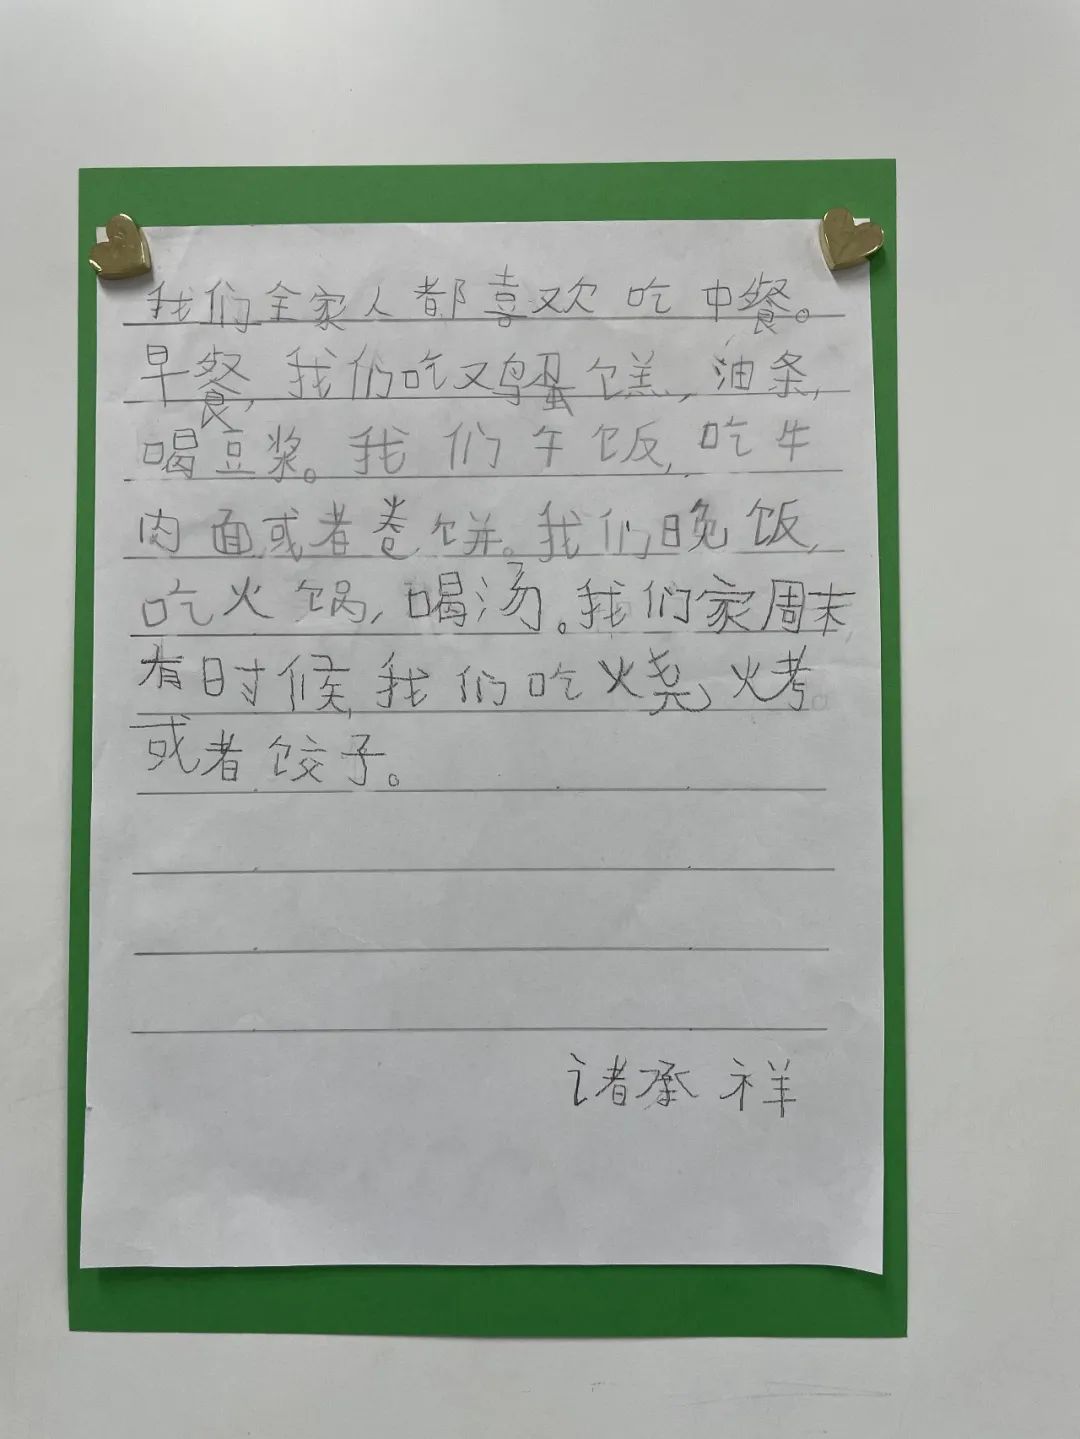 我们全家人都喜欢吃中餐。
早餐,我们吃鸡蛋饣羔,油条,
喝豆浆。我们午饭,吃牛
肉面或者卷饼。我们晚饭,
吃火锅,喝汤。我们家周末,
有时候,我们吃烧烤。
或者饺子。
诸承祥